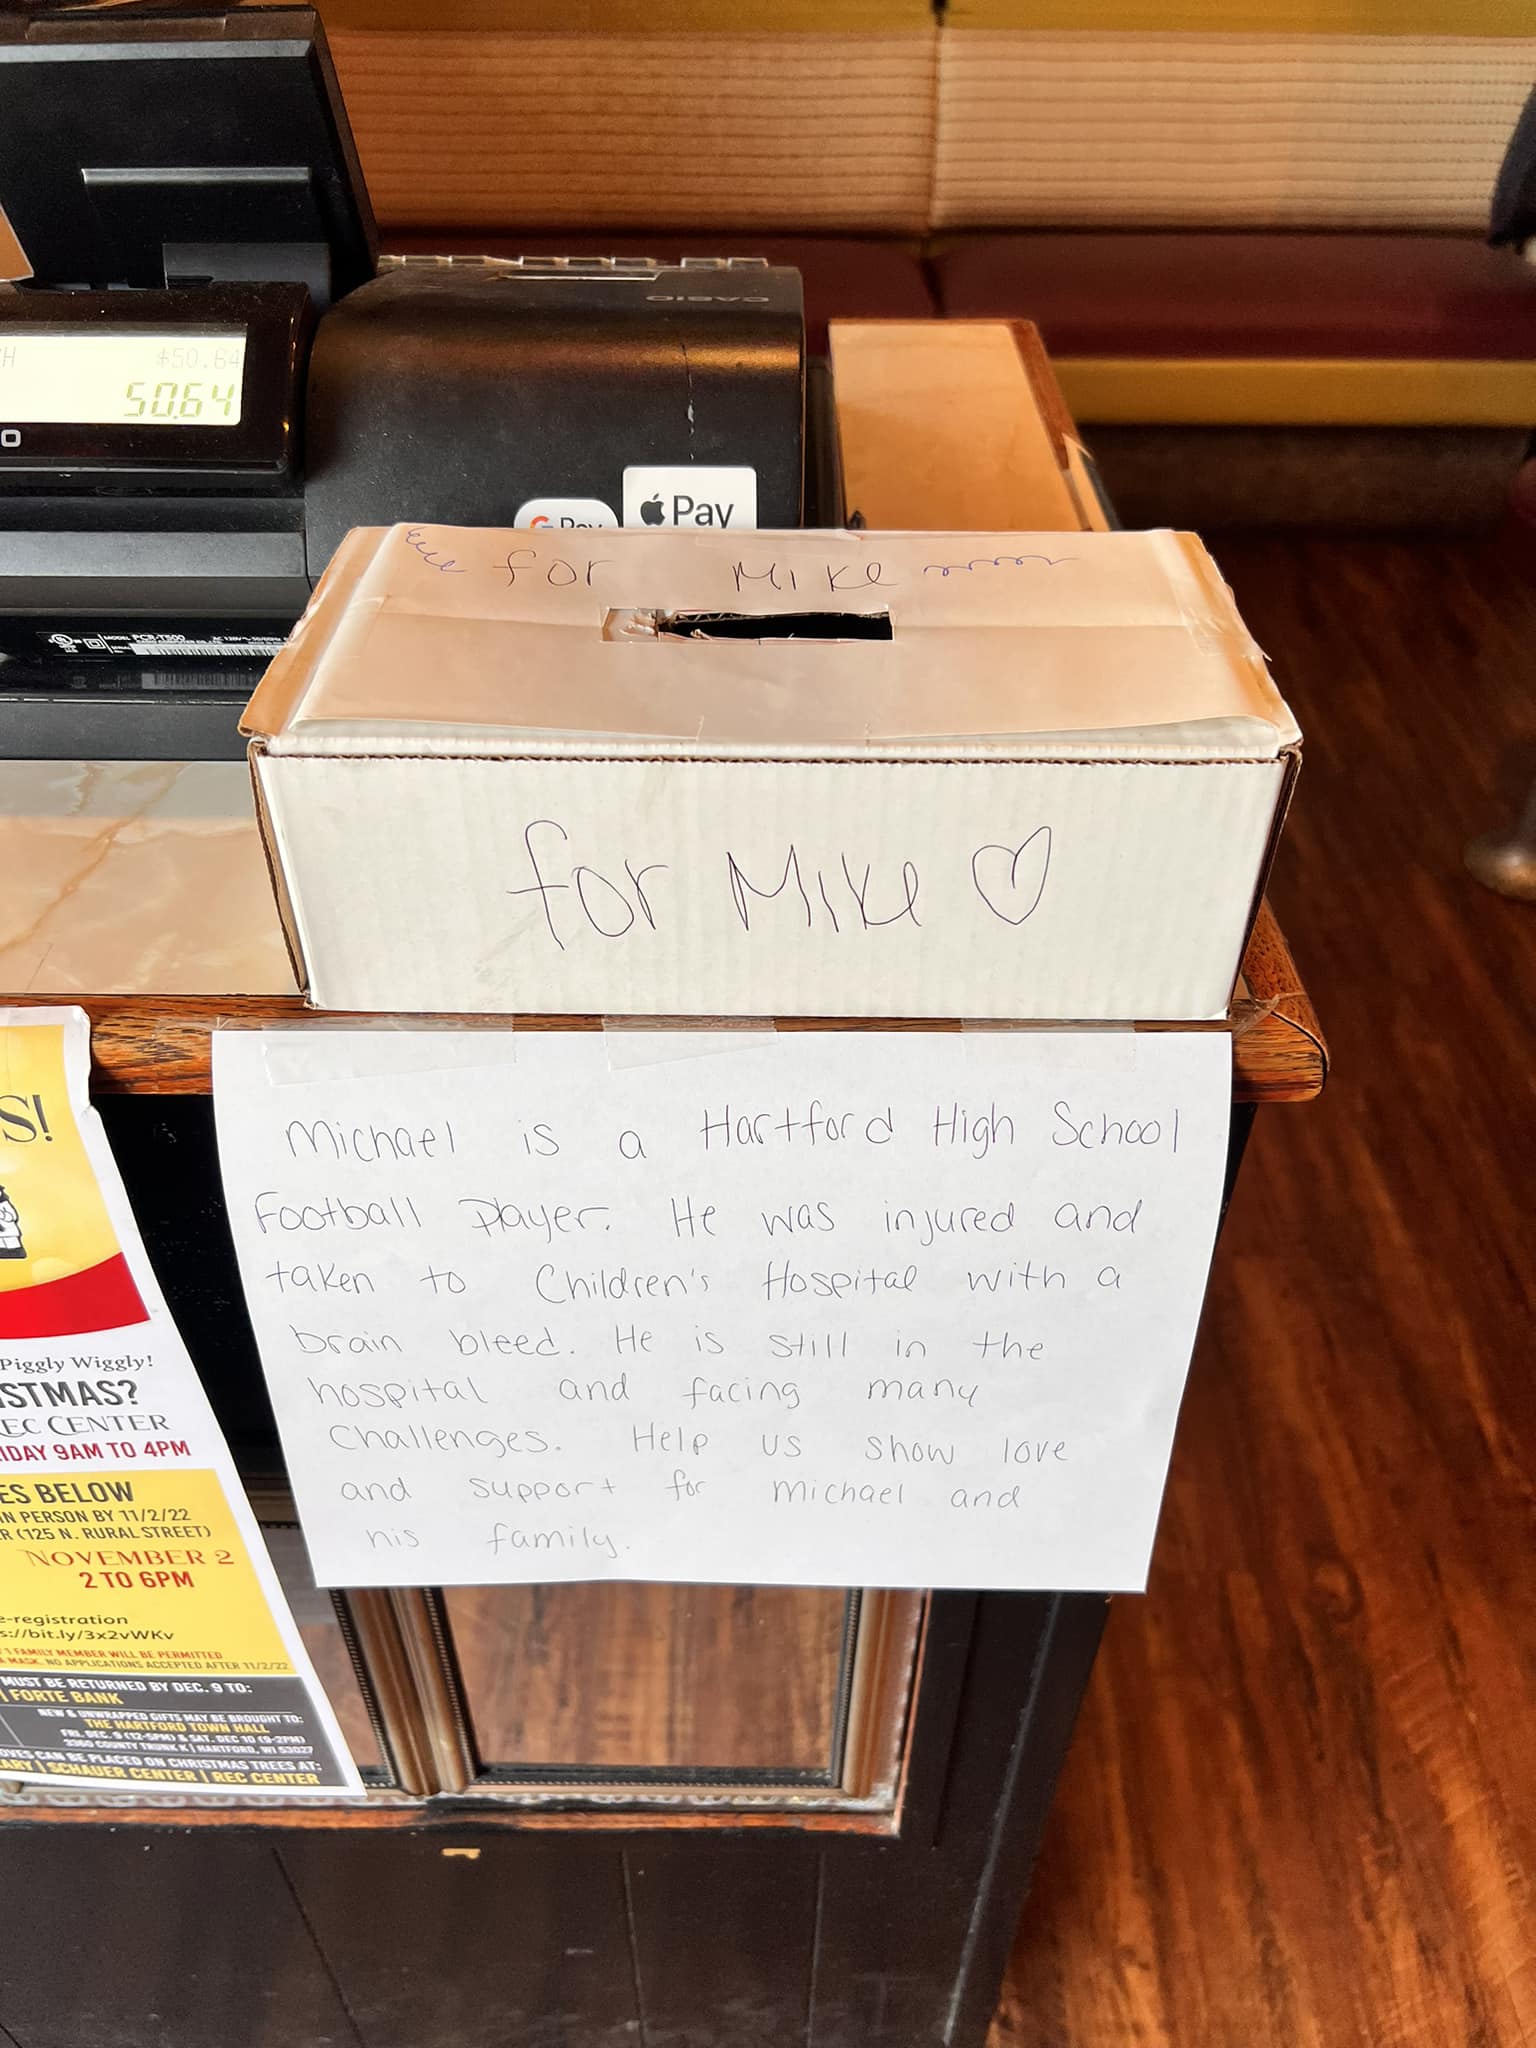 CASIO
$50.64
50.64
G Pay
Pay
MODEL PCR-T500
for Mike
for Mike
Michael is a Hartford High School
Football Player. He was injured and
taken to Children's Hospital with a
brain bleed. He is still in the
hospital and facing many
Challenges. Help us show love
and support for Michael and
his family.
S!
Piggly Wiggly!
STMAS?
EC CENTER
IDAY 9AM TO 4PM
ES BELOW
IN PERSON BY 11/2/22
R (125 N. RURAL STREET)
NOVEMBER 2
2 TO 6PM
e-registration
s://bit.ly/3x2vWKv
1 FAMILY MEMBER WILL BE PERMITTED
A MASK. NO APPLICATIONS ACCEPTED AFTER 11/2/22
MUST BE RETURNED BY DEC. 9 TO:
| FORTE BANK
NEW & UNWRAPPED GIFTS MAY BE BROUGHT TO:
THE HARTFORD TOWN HALL
FRI. DEC. 9 (12-5PM) & SAT. DEC 10 (9-2PM)
3360 COUNTY TRUNK K | HARTFORD, WI 53027
OVES CAN BE PLACED ON CHRISTMAS TREES AT:
ARY | SCHAUER CENTER | REC CENTER